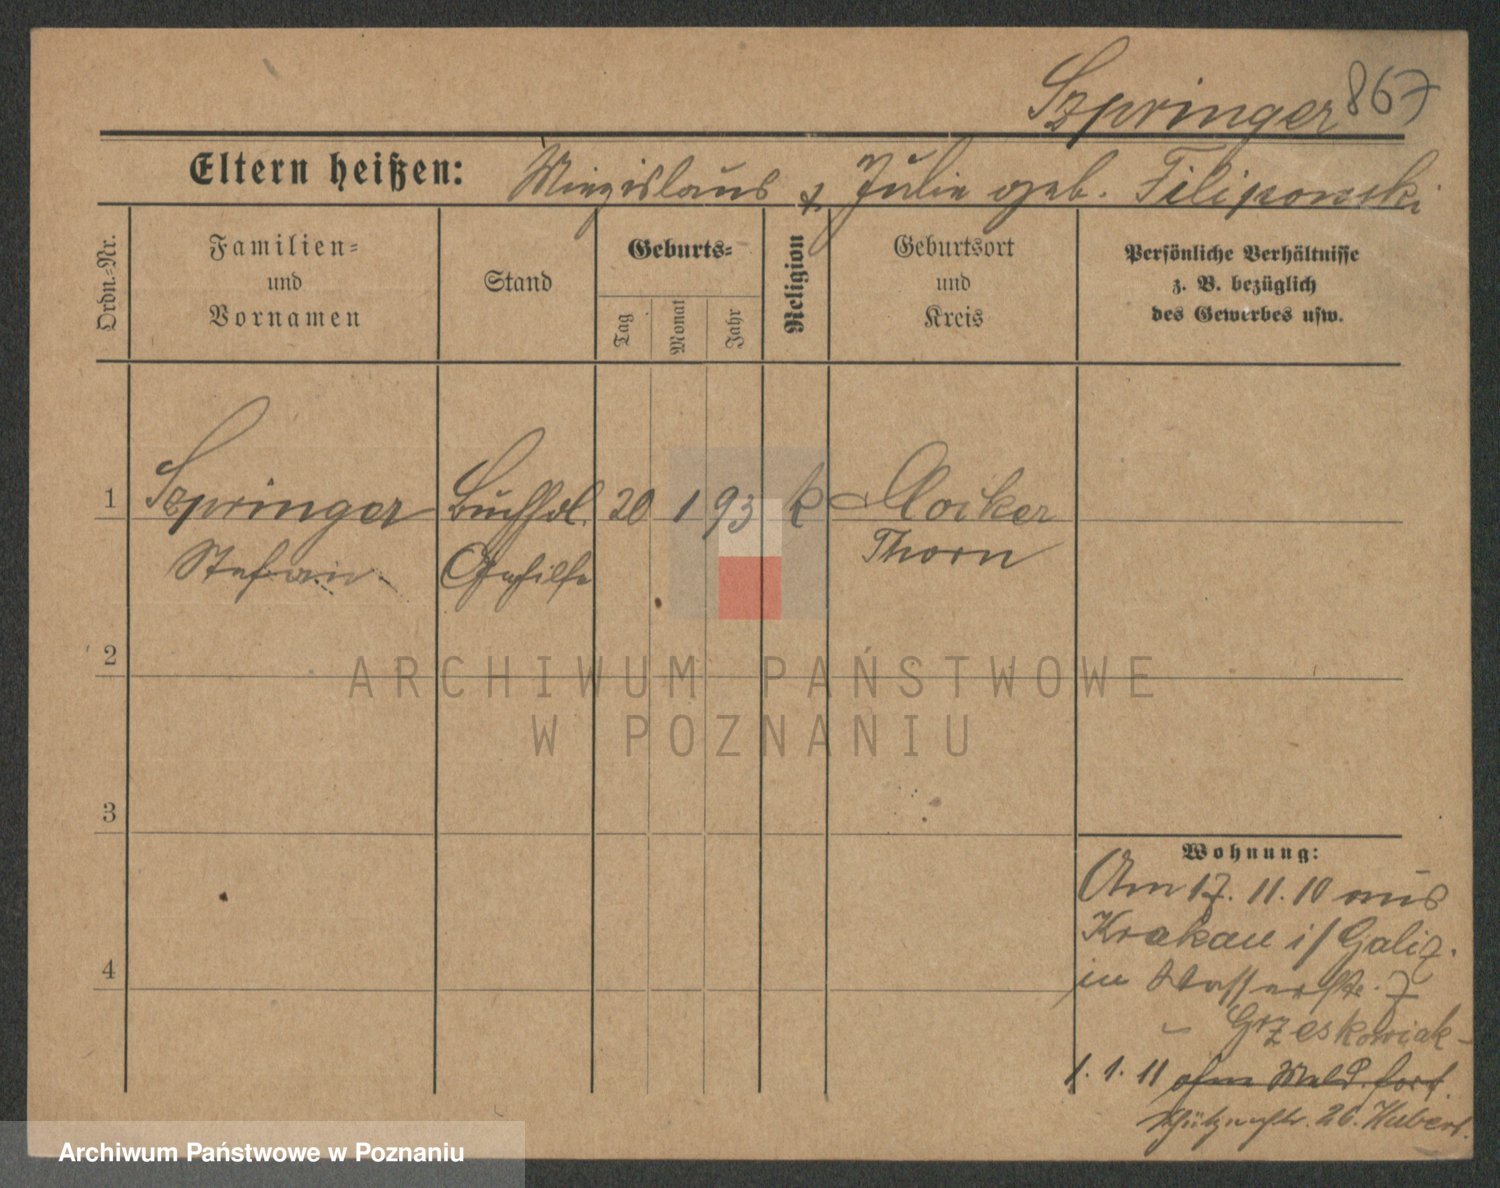 Szpringer 867
Eltern heißen: Miezislaus & Julie geb. Filipowski
Ordn.=Nr.
Familien=
und
Vornamen
Stand
Geburts=
Tag
Monat
Jahr
Religion
Geburtsort
und
Kreis
Persönliche Verhältnisse
z. B. bezüglich
des Gewerbes usw.
1 Szpringer Buchhdl. 20 1 93 k Mocker
Stefan Gehilfe Thorn
2
3
4
Wohnung:
Am 17. 11. 10 aus
Krakau i/Galiz.
in Wasserstr. 7
- Grzeskowiak -
1. 1. 11 ohne Meld. fort.
Schützenstr. 26. Hubert.
ARCHIWUM PAŃSTWOWE
W POZNANIU
Archiwum Państwowe w Poznaniu